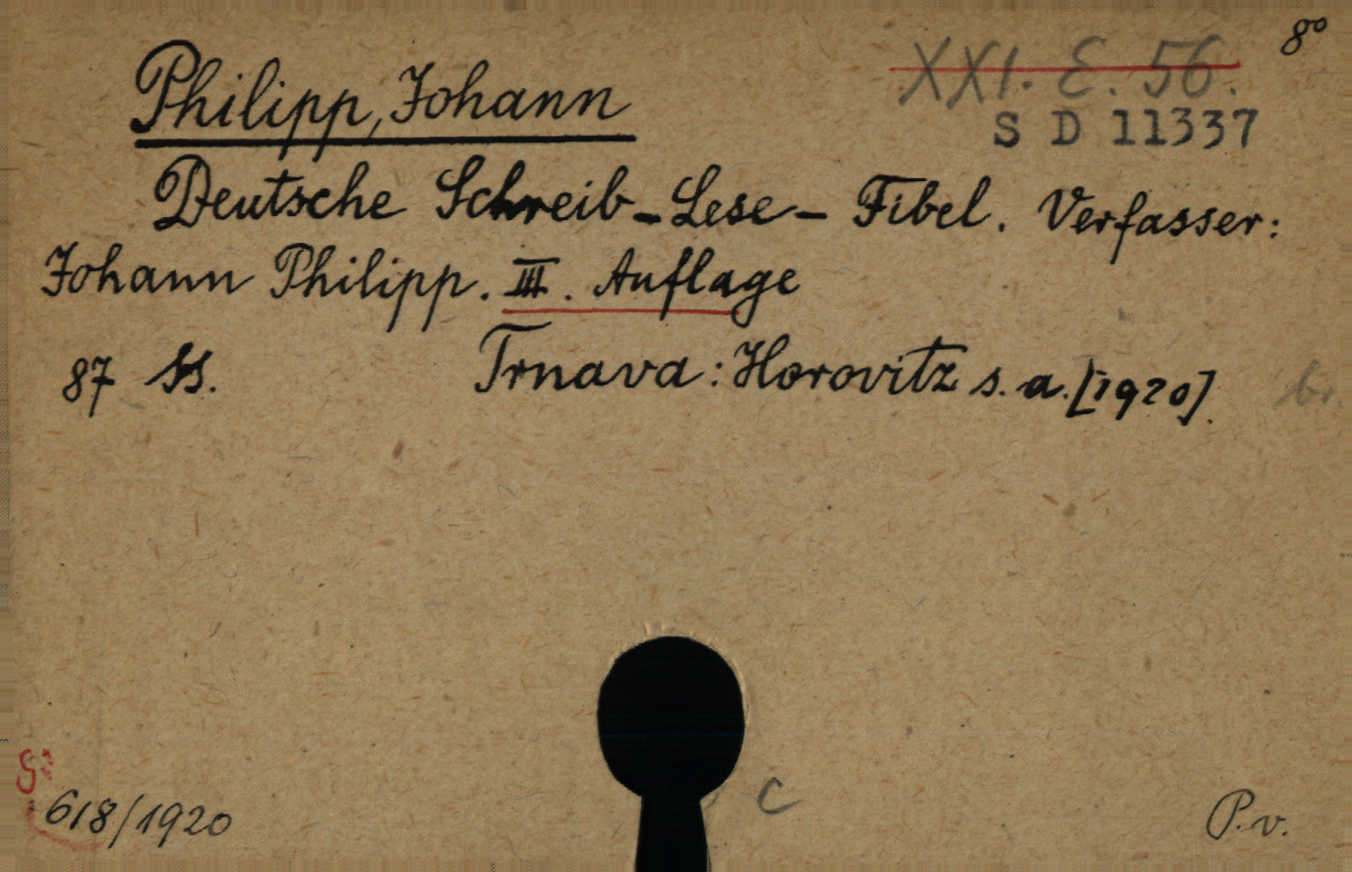 8º
XXI. E. 56.
S D 11337
Philipp, Johann
Deutsche Schreib-Lese-Fibel. Verfasser:
Johann Philipp. III. Auflage
87 SS. Trnava: Horovitz s. a. [1920].
br.
c
618/1920
P. v.